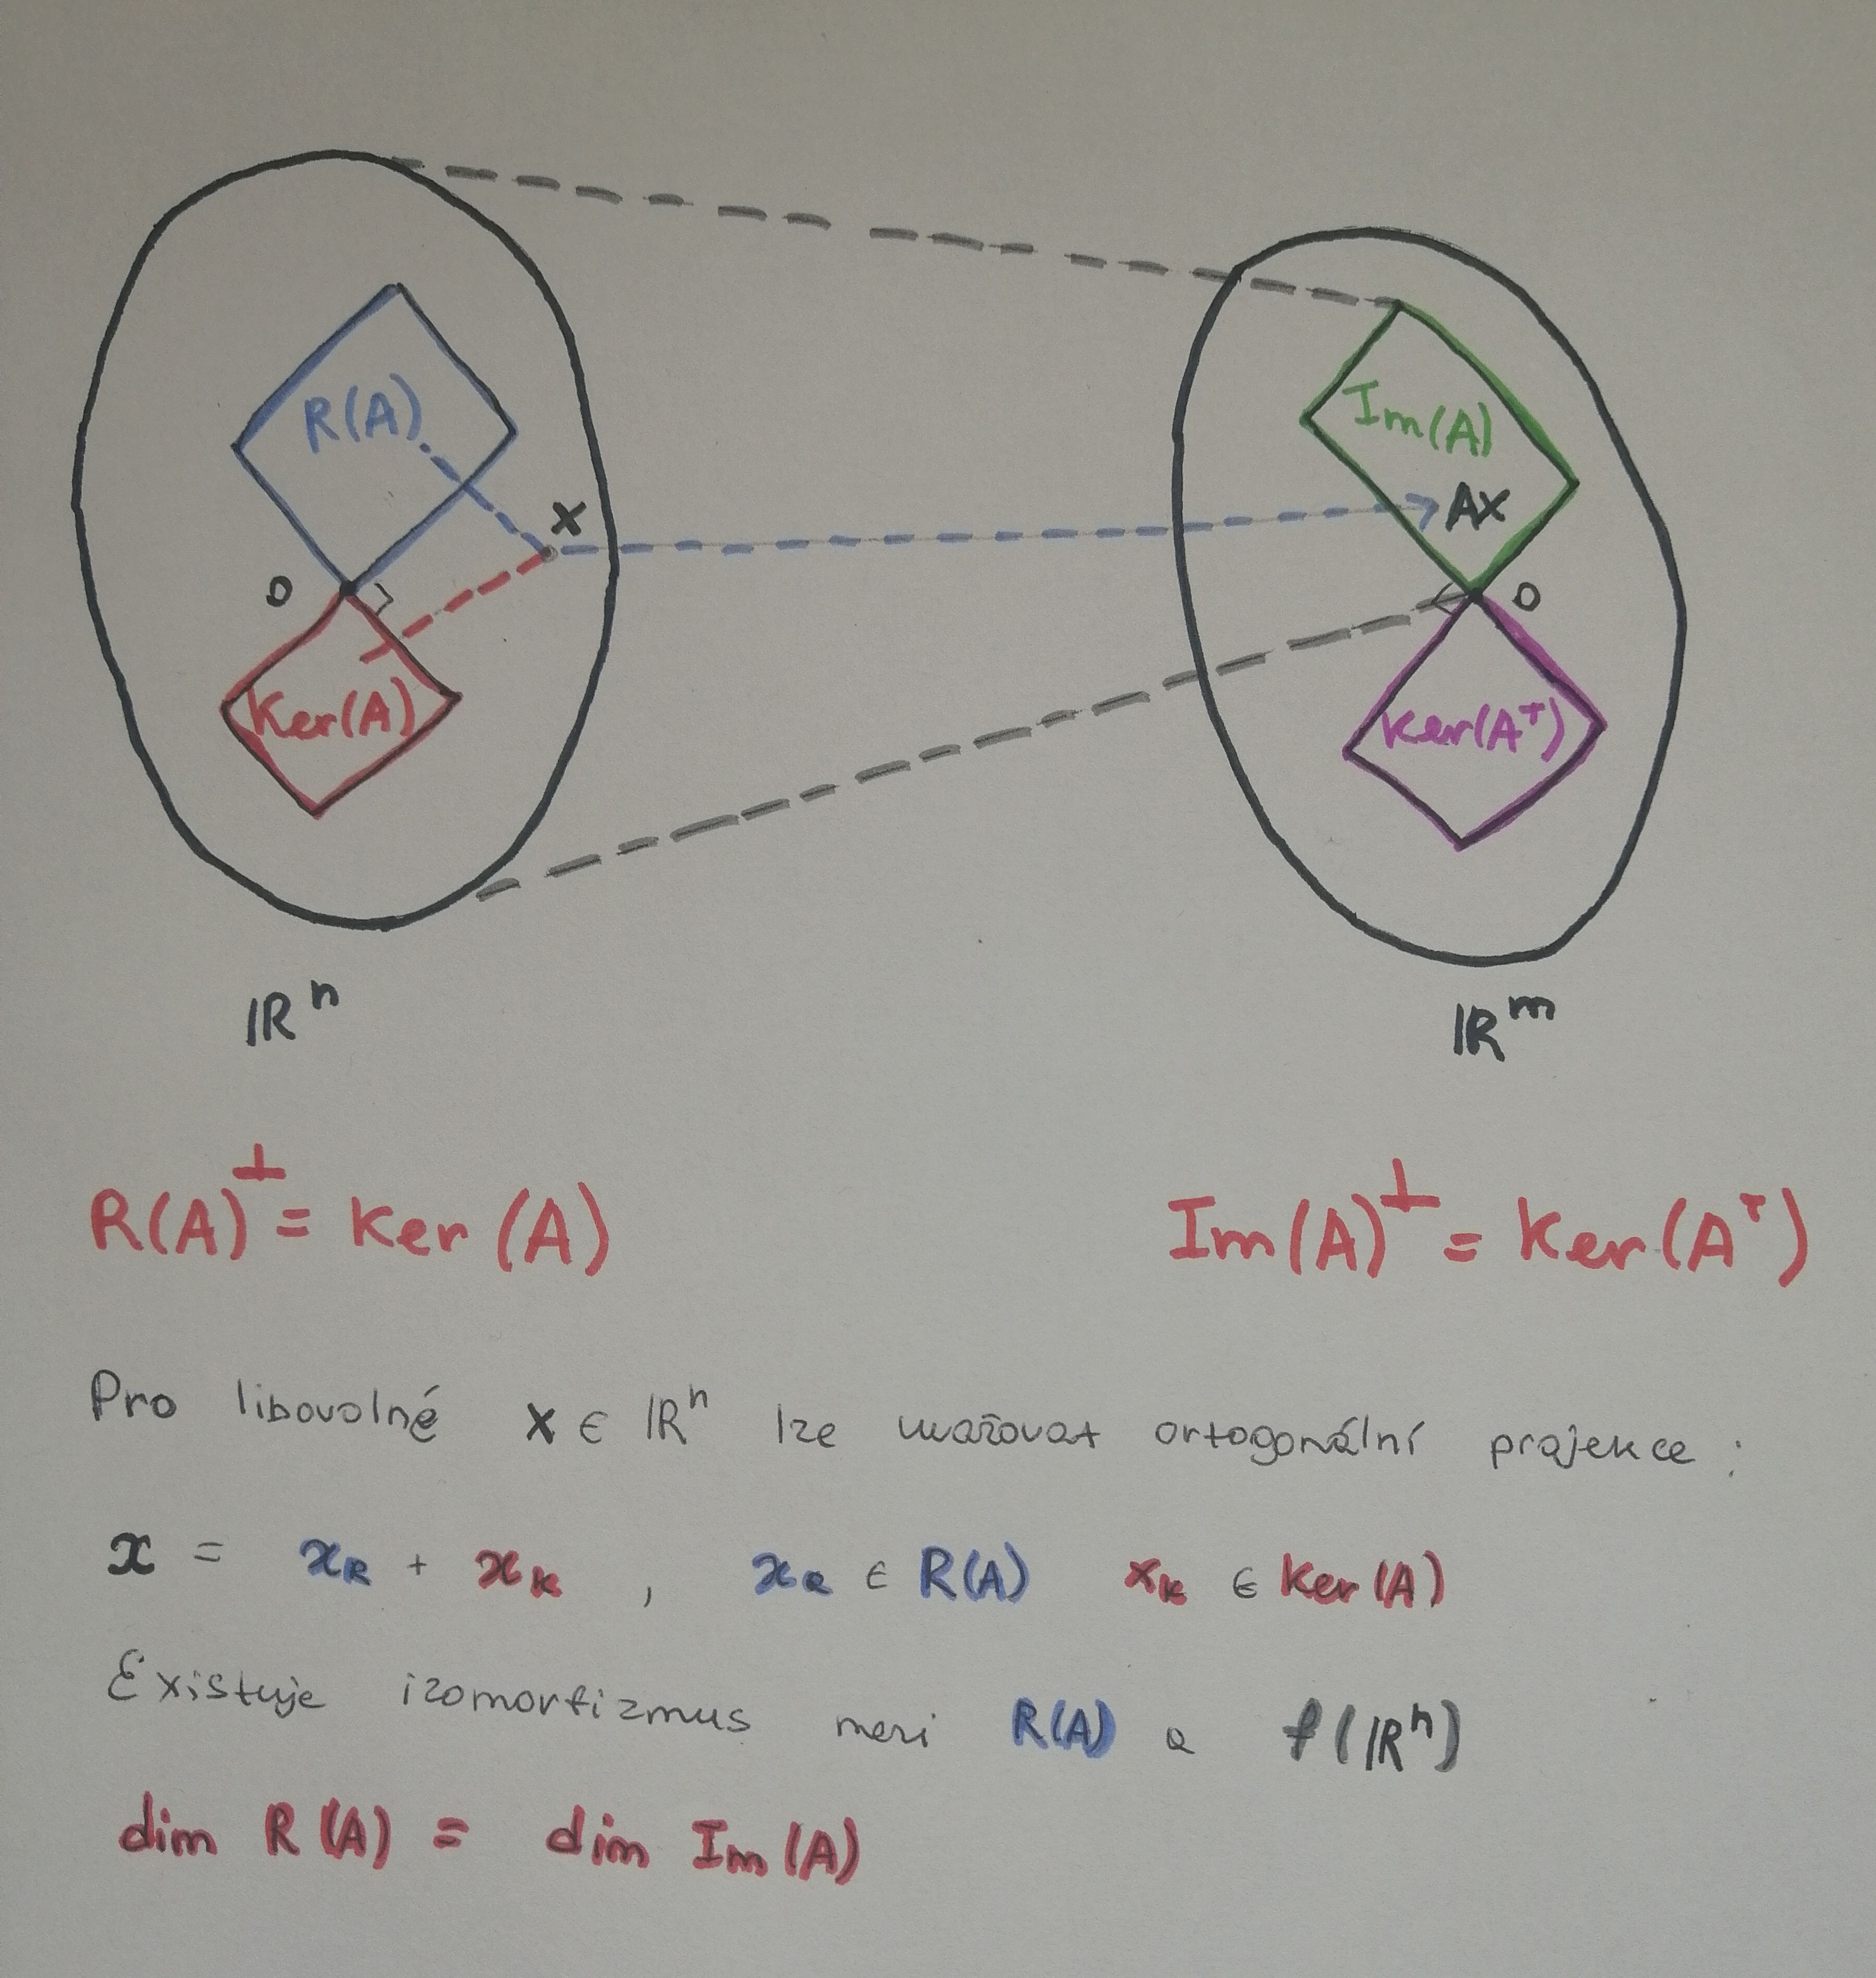 R(A)
Im(A)
x
Ax
0
0
Ker(A)
Ker(Aᵀ)
ℝⁿ
ℝᵐ
R(A)⊥ = Ker (A)
Im(A)⊥ = Ker(Aᵀ)
Pro libovolné x ∈ ℝⁿ lze uvažovat ortogonální projekce :
x = x_R + x_K , x_R ∈ R(A) x_K ∈ Ker(A)
Existuje izomorfizmus mezi R(A) a f(ℝⁿ)
dim R(A) = dim Im(A)